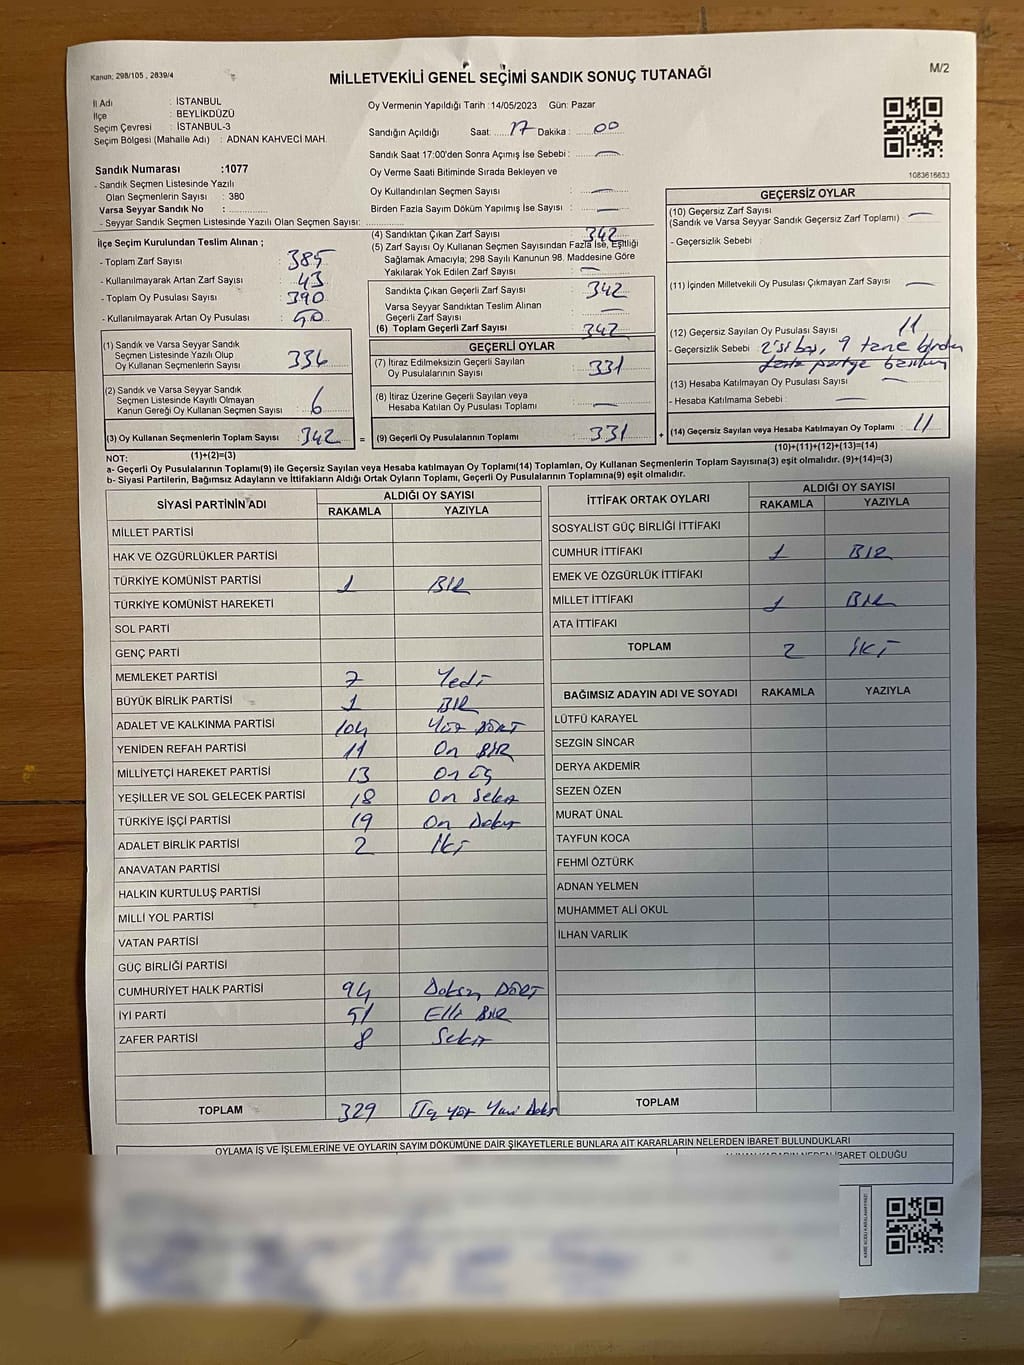 Kanun; 298/105 , 2839/4
MİLLETVEKİLİ GENEL SEÇİMİ SANDIK SONUÇ TUTANAĞI
M/2
İl Adı : İSTANBUL
İlçe : BEYLİKDÜZÜ
Seçim Çevresi : İSTANBUL-3
Seçim Bölgesi (Mahalle Adı) : ADNAN KAHVECİ MAH.
Oy Vermenin Yapıldığı Tarih :14/05/2023 Gün: Pazar
Sandığın Açıldığı Saat:.....17 Dakika :....00
Sandık Saat 17:00'den Sonra Açımış İse Sebebi : —
Oy Verme Saati Bitiminde Sırada Bekleyen ve
Oy Kullandırılan Seçmen Sayısı : —
Birden Fazla Sayım Döküm Yapılmış İse Sayısı : —
1083616633
Sandık Numarası :1077
- Sandık Seçmen Listesinde Yazılı
Olan Seçmenlerin Sayısı : 380
Varsa Seyyar Sandık No :
- Seyyar Sandık Seçmen Listesinde Yazılı Olan Seçmen Sayısı:
İlçe Seçim Kurulundan Teslim Alınan ;
- Toplam Zarf Sayısı : 385
- Kullanılmayarak Artan Zarf Sayısı : 43
- Toplam Oy Pusulası Sayısı : 390
- Kullanılmayarak Artan Oy Pusulası : 50
(1) Sandık ve Varsa Seyyar Sandık
Seçmen Listesinde Yazılı Olup
Oy Kullanan Seçmenlerin Sayısı : 336
(2) Sandık ve Varsa Seyyar Sandık
Seçmen Listesinde Kayıtlı Olmayan
Kanun Gereği Oy Kullanan Seçmen Sayısı : 6
(3) Oy Kullanan Seçmenlerin Toplam Sayısı : 342
(4) Sandıktan Çıkan Zarf Sayısı : 342
(5) Zarf Sayısı Oy Kullanan Seçmen Sayısından Fazla İse, Eşitliği
Sağlamak Amacıyla; 298 Sayılı Kanunun 98. Maddesine Göre
Yakılarak Yok Edilen Zarf Sayısı : —
Sandıkta Çıkan Geçerli Zarf Sayısı : 342
Varsa Seyyar Sandıktan Teslim Alınan
Geçerli Zarf Sayısı : —
(6) Toplam Geçerli Zarf Sayısı : 342
GEÇERLİ OYLAR
(7) İtiraz Edilmeksizin Geçerli Sayılan
Oy Pusulalarının Sayısı : 331
(8) İtiraz Üzerine Geçerli Sayılan veya
Hesaba Katılan Oy Pusulası Toplamı : —
= (9) Geçerli Oy Pusulalarının Toplamı : 331 +
GEÇERSİZ OYLAR
(10) Geçersiz Zarf Sayısı
(Sandık ve Varsa Seyyar Sandık Geçersiz Zarf Toplamı) : —
- Geçersizlik Sebebi :
(11) İçinden Milletvekili Oy Pusulası Çıkmayan Zarf Sayısı : —
(12) Geçersiz Sayılan Oy Pusulası Sayısı : 11
- Geçersizlik Sebebi : 2'si boş, 9 tane birden
fazla partiye basılmış
(13) Hesaba Katılmayan Oy Pusulası Sayısı : —
- Hesaba Katılmama Sebebi : —
(14) Geçersiz Sayılan veya Hesaba Katılmayan Oy Toplamı : 11
(10)+(11)+(12)+(13)=(14)
NOT: (1)+(2)=(3)
a- Geçerli Oy Pusulalarının Toplamı(9) ile Geçersiz Sayılan veya Hesaba katılmayan Oy Toplamı(14) Toplamları, Oy Kullanan Seçmenlerin Toplam Sayısına(3) eşit olmalıdır. (9)+(14)=(3)
b- Siyasi Partilerin, Bağımsız Adayların ve İttifakların Aldığı Ortak Oyların Toplamı, Geçerli Oy Pusulalarının Toplamına(9) eşit olmalıdır.
SİYASİ PARTİNİN ADI ALDIĞI OY SAYISI
RAKAMLA YAZIYLA
MİLLET PARTİSİ
HAK VE ÖZGÜRLÜKLER PARTİSİ
TÜRKİYE KOMÜNİST PARTİSİ 1 BİR
TÜRKİYE KOMÜNİST HAREKETİ
SOL PARTİ
GENÇ PARTİ
MEMLEKET PARTİSİ 7 Yedi
BÜYÜK BİRLİK PARTİSİ 1 BİR
ADALET VE KALKINMA PARTİSİ 104 Yüz DÖRT
YENİDEN REFAH PARTİSİ 11 On BİR
MİLLİYETÇİ HAREKET PARTİSİ 13 On Üç
YEŞİLLER VE SOL GELECEK PARTİSİ 18 On Sekiz
TÜRKİYE İŞÇİ PARTİSİ 19 On Dokuz
ADALET BİRLİK PARTİSİ 2 İki
ANAVATAN PARTİSİ
HALKIN KURTULUŞ PARTİSİ
MİLLİ YOL PARTİSİ
VATAN PARTİSİ
GÜÇ BİRLİĞİ PARTİSİ
CUMHURİYET HALK PARTİSİ 94 Doksan DÖRT
İYİ PARTİ 51 Elli BİR
ZAFER PARTİSİ 8 Sekiz
TOPLAM 329 Üç Yüz Yirmi Dokuz
İTTİFAK ORTAK OYLARI ALDIĞI OY SAYISI
RAKAMLA YAZIYLA
SOSYALİST GÜÇ BİRLİĞİ İTTİFAKI
CUMHUR İTTİFAKI 1 BİR
EMEK VE ÖZGÜRLÜK İTTİFAKI
MİLLET İTTİFAKI 1 BİR
ATA İTTİFAKI
TOPLAM 2 İKİ
BAĞIMSIZ ADAYIN ADI VE SOYADI RAKAMLA YAZIYLA
LÜTFÜ KARAYEL
SEZGİN SİNCAR
DERYA AKDEMİR
SEZEN ÖZEN
MURAT ÜNAL
TAYFUN KOCA
FEHMİ ÖZTÜRK
ADNAN YELMEN
MUHAMMET ALİ OKUL
İLHAN VARLIK
TOPLAM
OYLAMA İŞ VE İŞLEMLERİNE VE OYLARIN SAYIM DÖKÜMÜNE DAİR ŞİKAYETLERLE BUNLARA AİT KARARLARIN NELERDEN İBARET BULUNDUKLARI
İBARET OLDUĞU